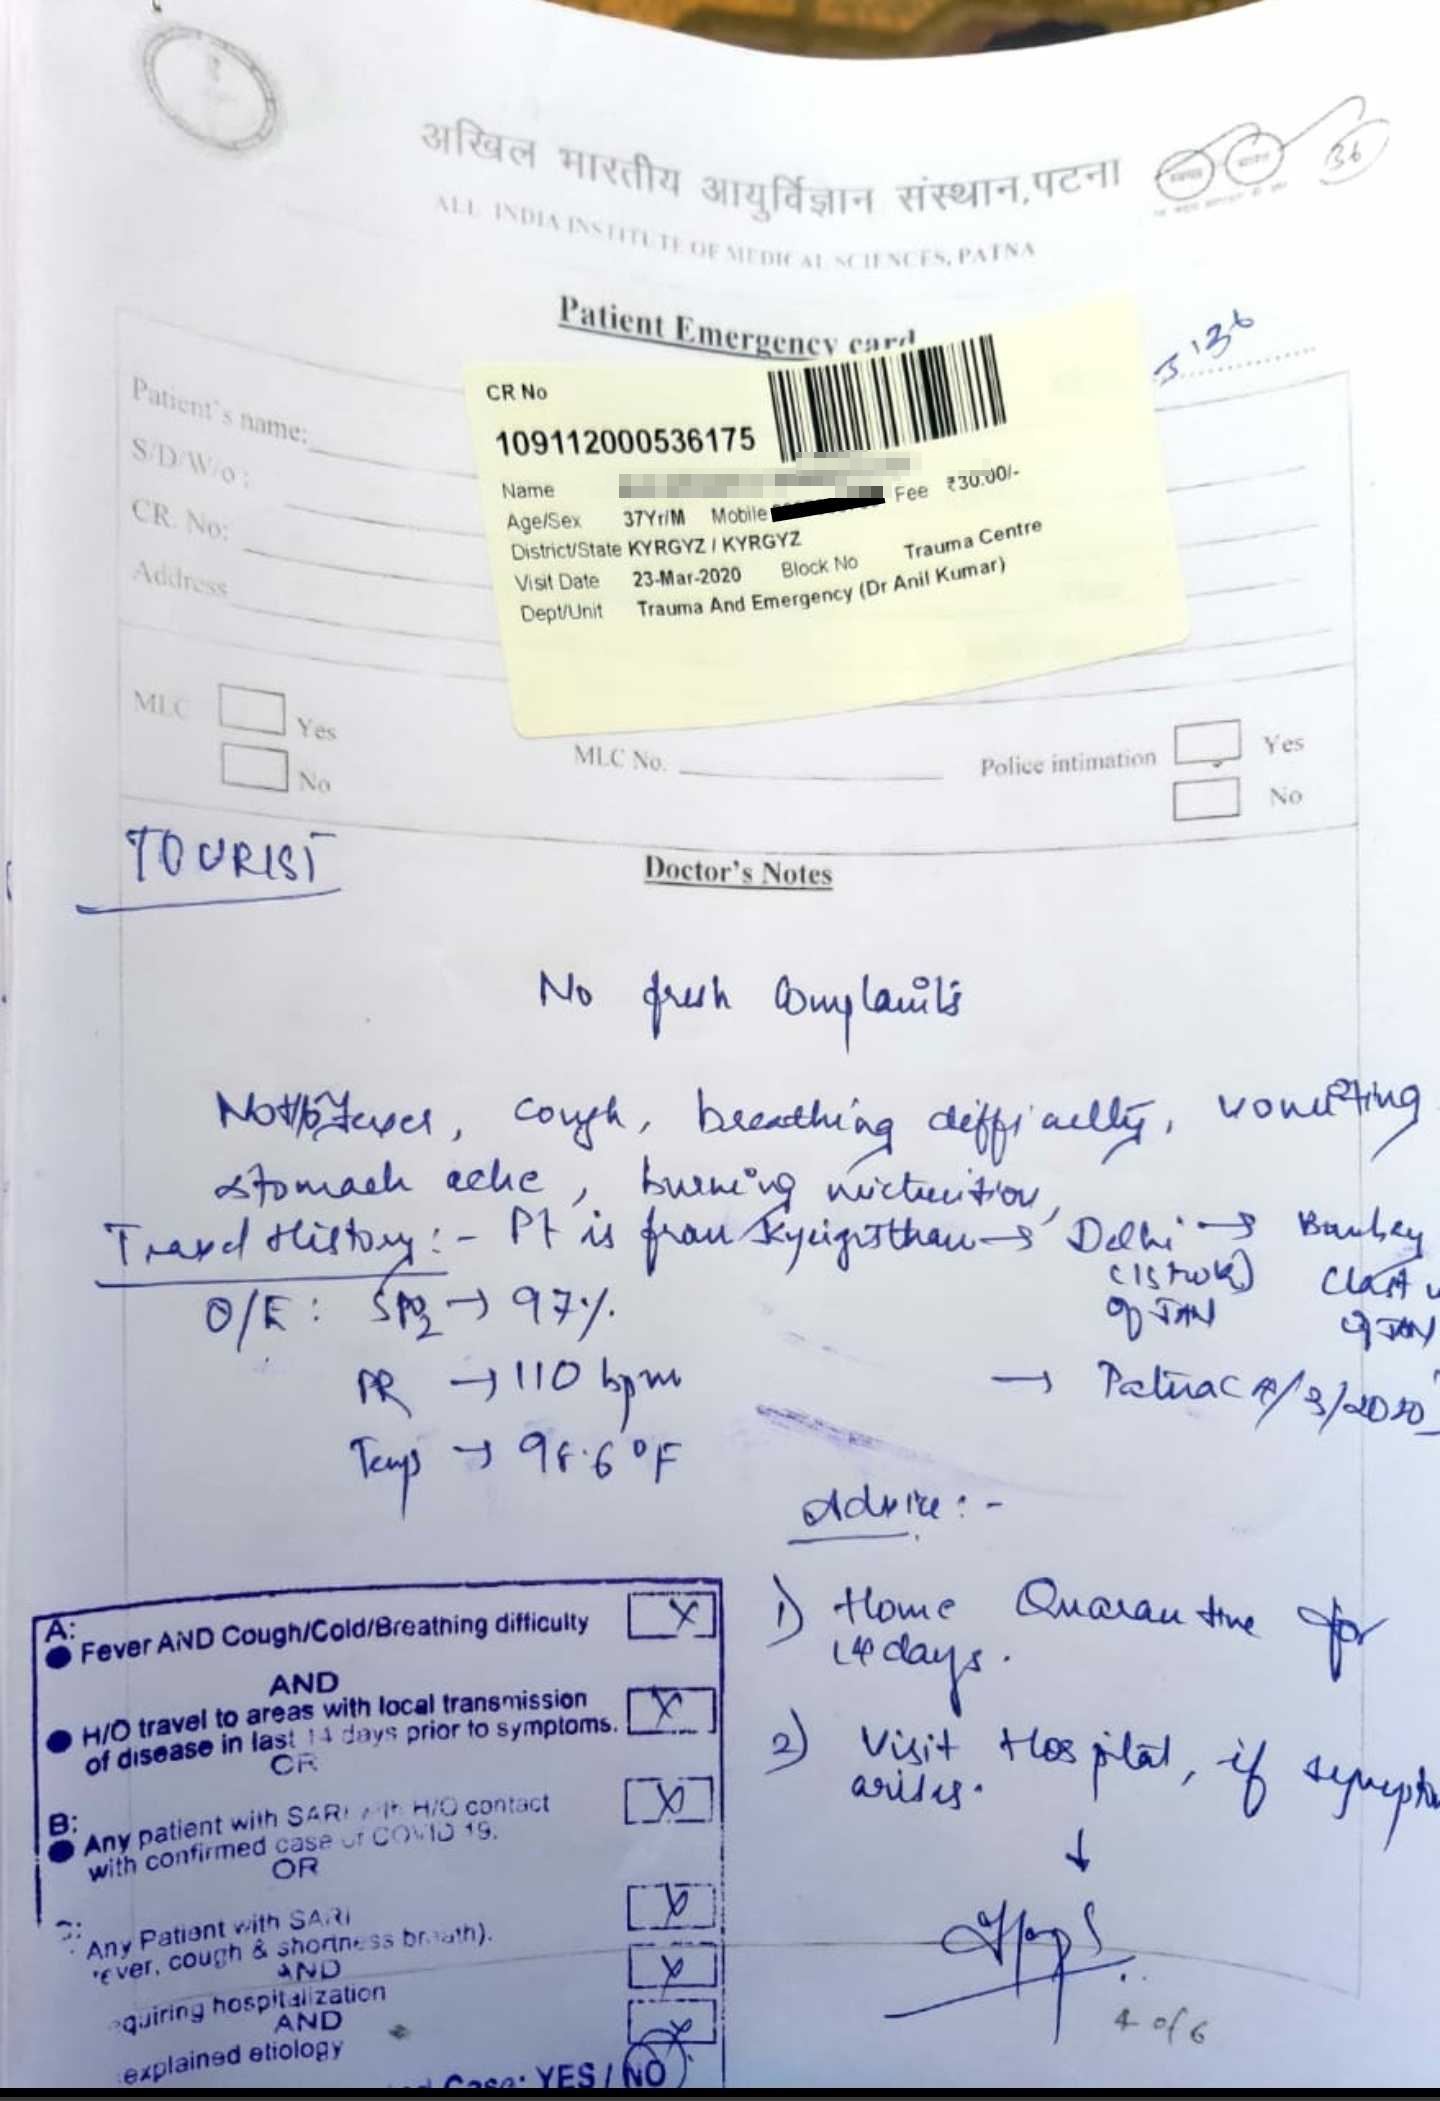 अखिल भारतीय आयुर्विज्ञान संस्थान,पटना
36
ALL INDIA INSTITUTE OF MEDICAL SCIENCES, PATNA
Patient Emergency card
136
CR No
109112000536175
Patient's name:
Name
Fee ₹30.00/-
S/D/W/o :
Age/Sex 37Yr/M Mobile
CR. No:
District/State KYRGYZ / KYRGYZ
Visit Date 23-Mar-2020 Block No Trauma Centre
Address
Dept/Unit Trauma And Emergency (Dr Anil Kumar)
MLC Yes
No
MLC No.
Police intimation Yes
No
TOURIST
Doctor's Notes
No fresh Complaints
fever, cough, breathing difficulty, vomiting
stomach ache, burning micturition,
Travel History:- Pt is from Kyrigisthan → Delhi → Bombay
(1st wk) (last
of JAN of JAN
O/E: SPO2 → 97%
PR → 110 bpm
→ Patna /3/2020
Temp → 98.6°F
Advice:-
1) Home Quarantine for
14 days.
2) Visit Hospital, if
arises.
↓
4 of 6
A:
Fever AND Cough/Cold/Breathing difficulty
AND
H/O travel to areas with local transmission
of disease in last 14 days prior to symptoms.
OR
B:
Any patient with SARI with H/O contact
with confirmed case of COVID 19.
OR
Any Patient with SARI
ever, cough & shortness breath).
AND
quiring hospitalization
AND
explained etiology
Case: YES / NO